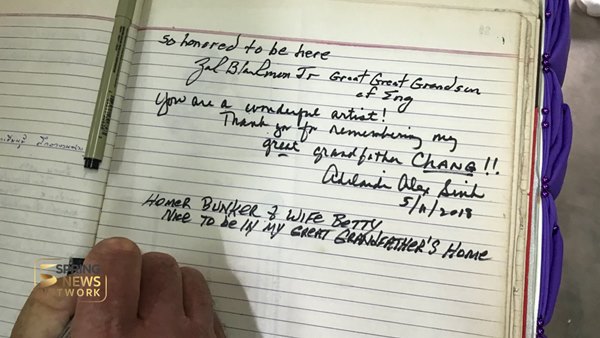 so honored to be here
Zack Blackmon Jr Great Great Grandson
of Eng
You are a wonderful artist!
Thank you for remembering my
great grandfather CHANG!!
Alex Sink
5/11/2018
HOMER BUNKER & WIFE BETTY
NICE TO BE IN MY GREAT GRANDFATHER'S HOME
SPRING
NEWS
NETWORK